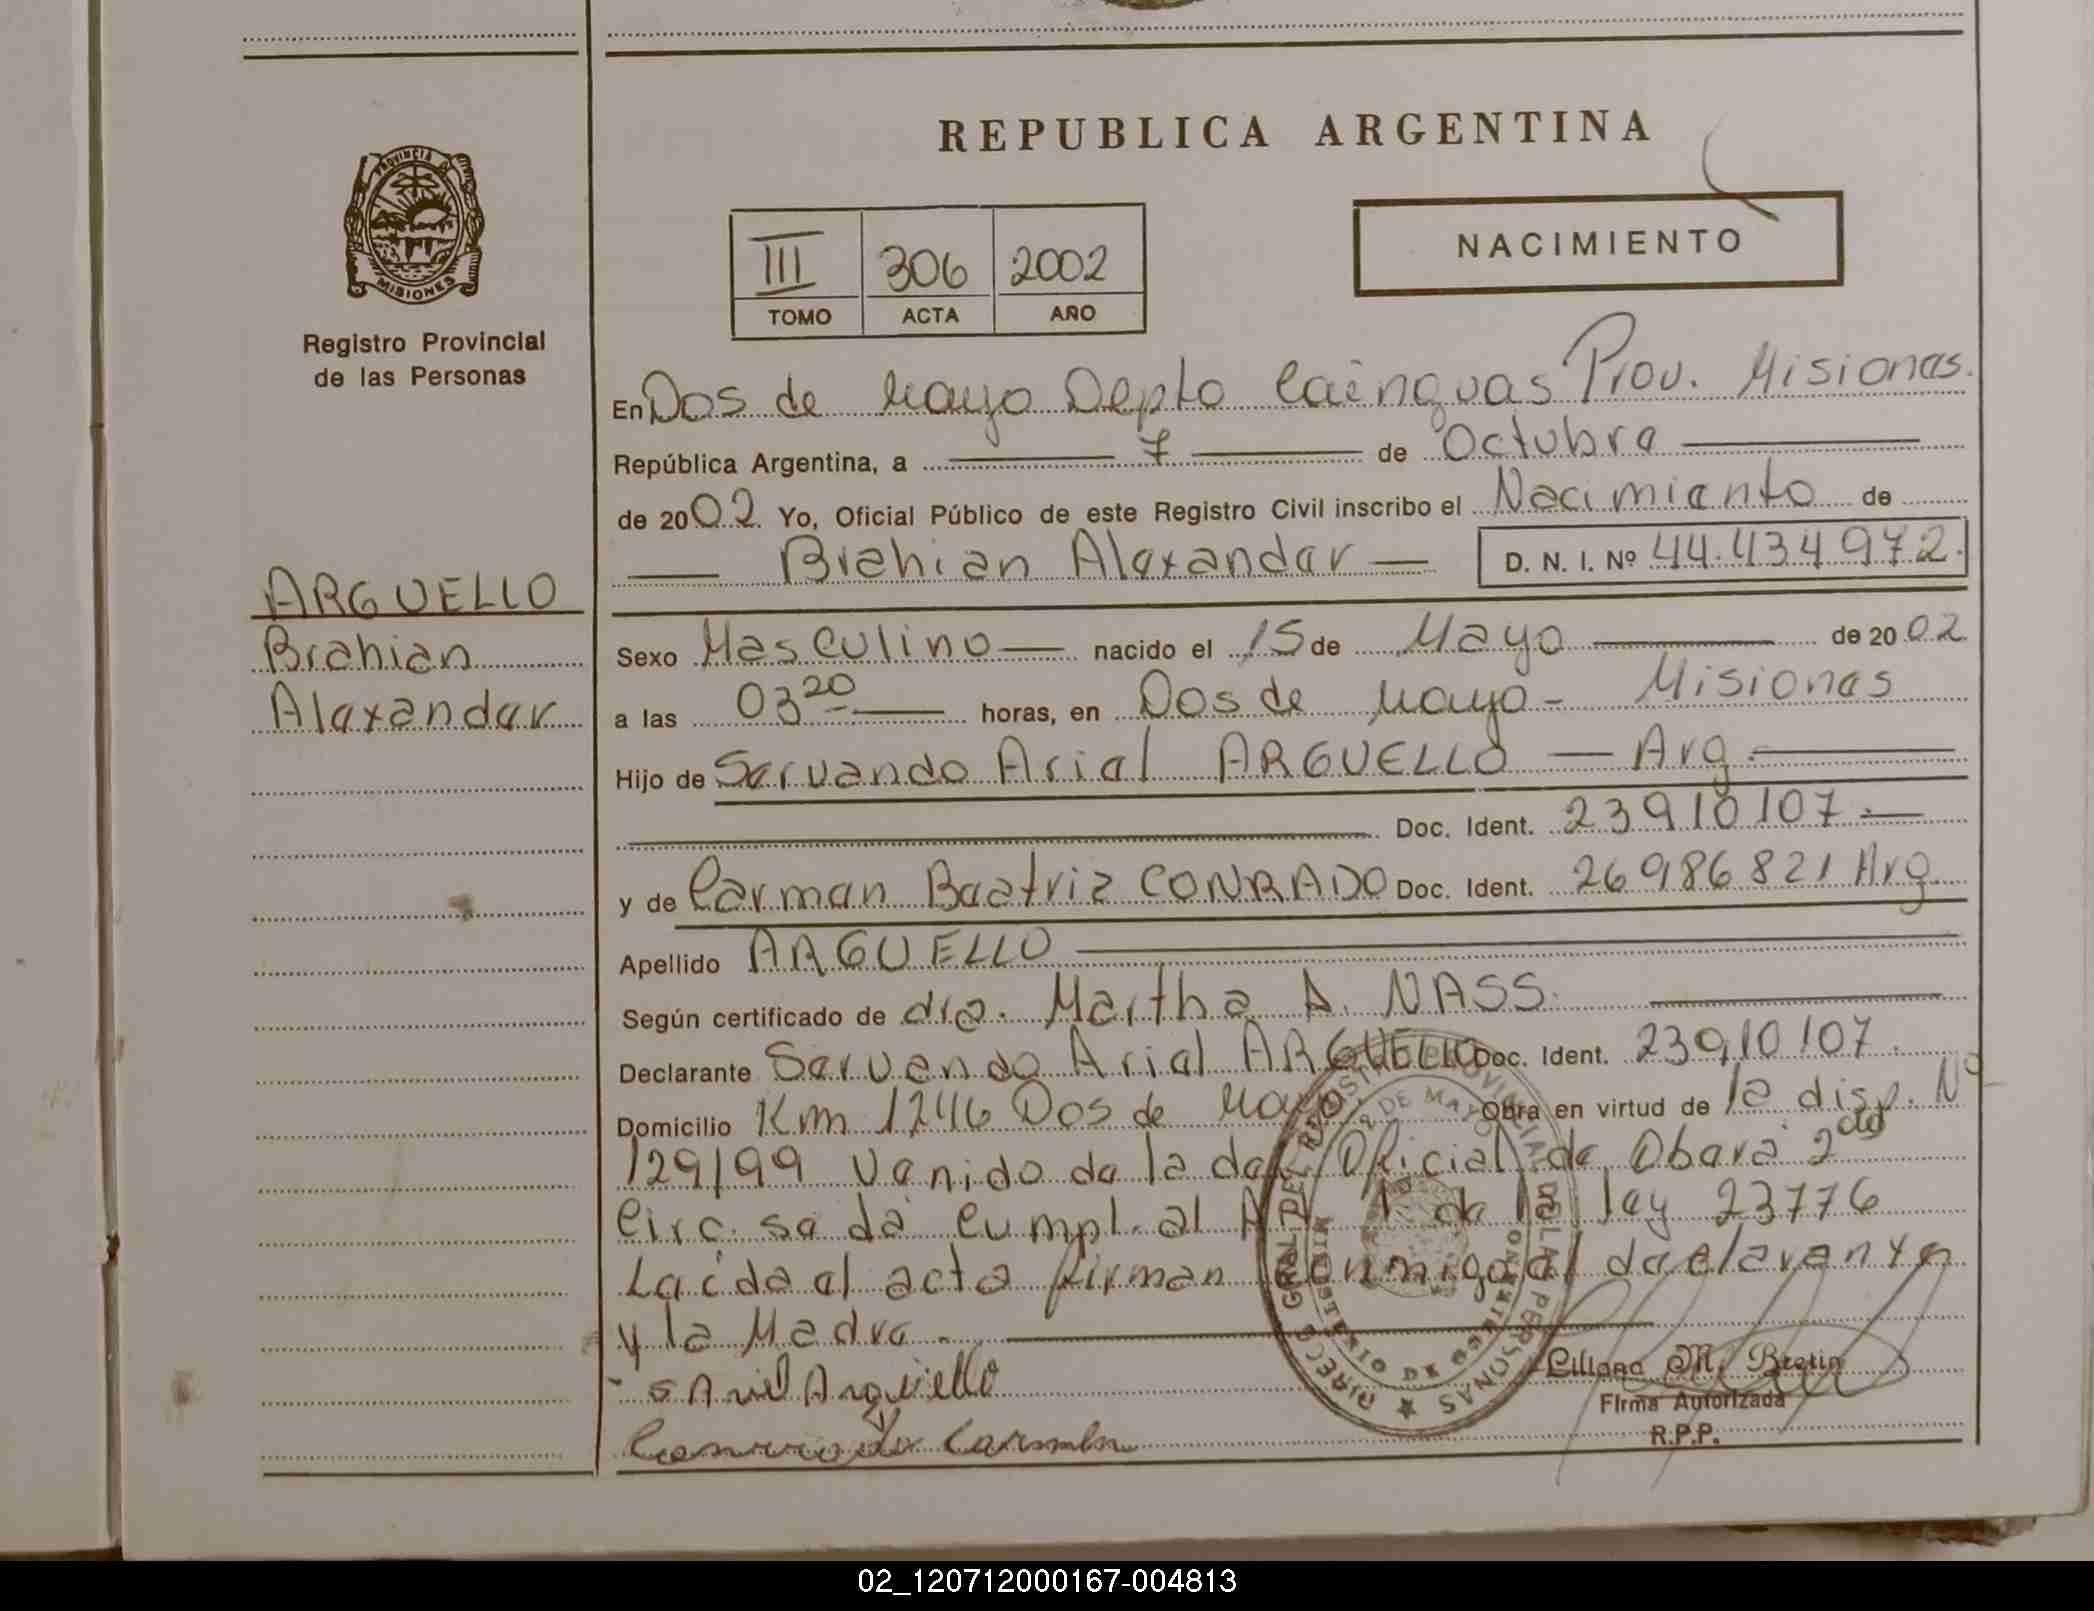 REPUBLICA ARGENTINA
PROVINCIA DE
MISIONES
Registro Provincial
de las Personas
III 306 2002
TOMO ACTA AÑO
NACIMIENTO
En Dos de Mayo Depto Cainguas Prov. Misiones.
República Argentina, a 7 de Octubre
de 2002. Yo, Oficial Público de este Registro Civil inscribo el Nacimiento de
Brahian Alexander D. N. I. Nº 44.434972.
ARGUELLO
Brahian
Alexander
Sexo Masculino nacido el 15 de Mayo de 2002
a las 03 20 horas, en Dos de Mayo - Misiones
Hijo de Servando Ariel ARGUELLO — Arg.
Doc. Ident. 23910107.
y de Carmen Beatriz CONRADO Doc. Ident. 26986821 Arg
Apellido ARGUELLO
Según certificado de dra. Martha A. NASS.
Declarante Servando Ariel ARGUELLO Doc. Ident. 23910107.
Domicilio Km 1246 Dos de Mayo Obra en virtud de la disp. Nº
129/99 Venido de la del. Oficial de Obera 2da
Circ. se dá cumpl. al Art. 1º de la ley 23776
Leída el acta firman conmigo el declarante
y la Madre.
S Ariel Arguello
Conrado Carmen
Liliana M. Bretin
Firma Autorizada
R.P.P.
DIRECC. GRAL. DEL REGISTRO PROVINCIAL DE LAS PERSONAS
2 DE MAYO
02_120712000167-004813